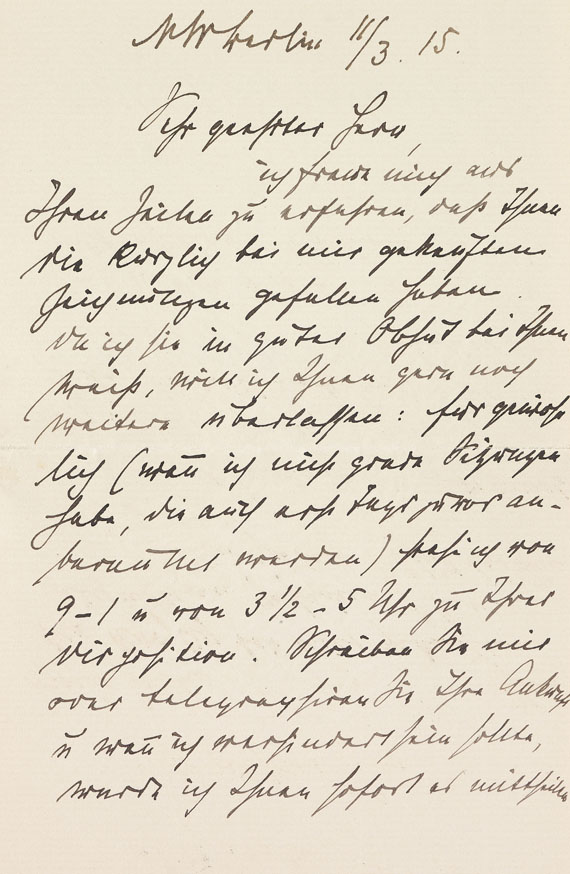 Berlin 11/3. 15.
Sehr geehrter Herr,
ich freue mich aus
Ihren Zeilen zu erfahren, daß Ihnen
die kürzlich bei mir gekauften
Zeichnungen gefallen haben.
Da ich sie in guter Obhut bei Ihnen
weiß, will ich Ihnen gern noch
weitere überlassen: für gewöhn
lich (wen̄ ich nicht grade Sitzungen
habe, die auch erst Tags zuvor an-
beraumt werden) steh ich von
9–1 u von 3 1/2 – 5 Uhr zu Ihrer
Disposition. Schreiben Sie mir
oder telegraphiren Sie Ihre Ankunft
u wen̄ ich verhindert sein sollte,
werde ich Ihnen sofort es mittheilen